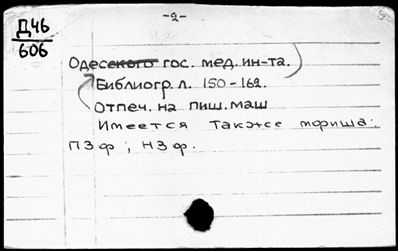 -2-
Д46
606
Одесского гос. мед. ин-та.)
Библиогр. л. 150-162.
Отпеч. на пиш. маш
Имеется также мфиша:
ПЗф ; НЗф.